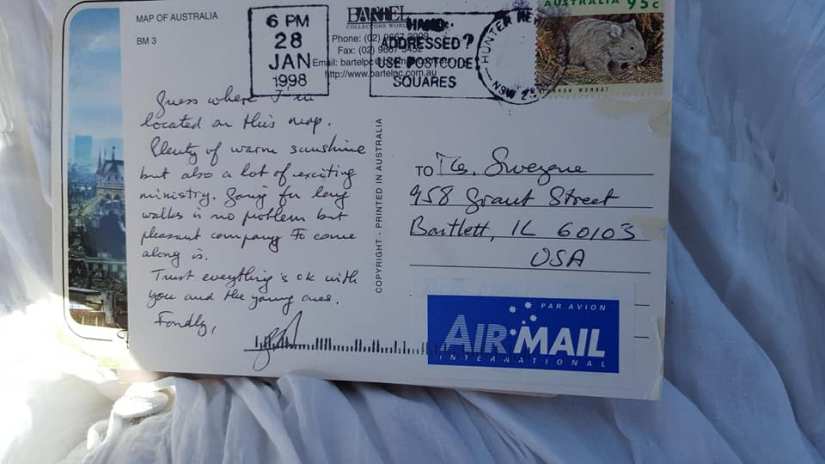 MAP OF AUSTRALIA
BM 3
BARTEL
COLLECTORS WORLD
Phone: (02) 9667
Fax: (02) 9667 3452
Email: bartelpc
http://www.bartelpc.com.au
6 PM
28
JAN
1998
HAND
ADDRESSED?
USE POSTCODE
SQUARES
HUNTER
NSW
AUSTRALIA 95c
WOMBAT
Guess where I'm
located on this map.
Plenty of warm sunshine
but also a lot of exciting
ministry. Going for long
walks is no problem but
pleasant company to come
along is.
Trust everything's ok with
you and the young ones.
Fondly,
COPYRIGHT - PRINTED IN AUSTRALIA
TO
958 Grant Street
Bartlett, IL 60103
USA
PAR AVION
AIR MAIL
INTERNATIONAL